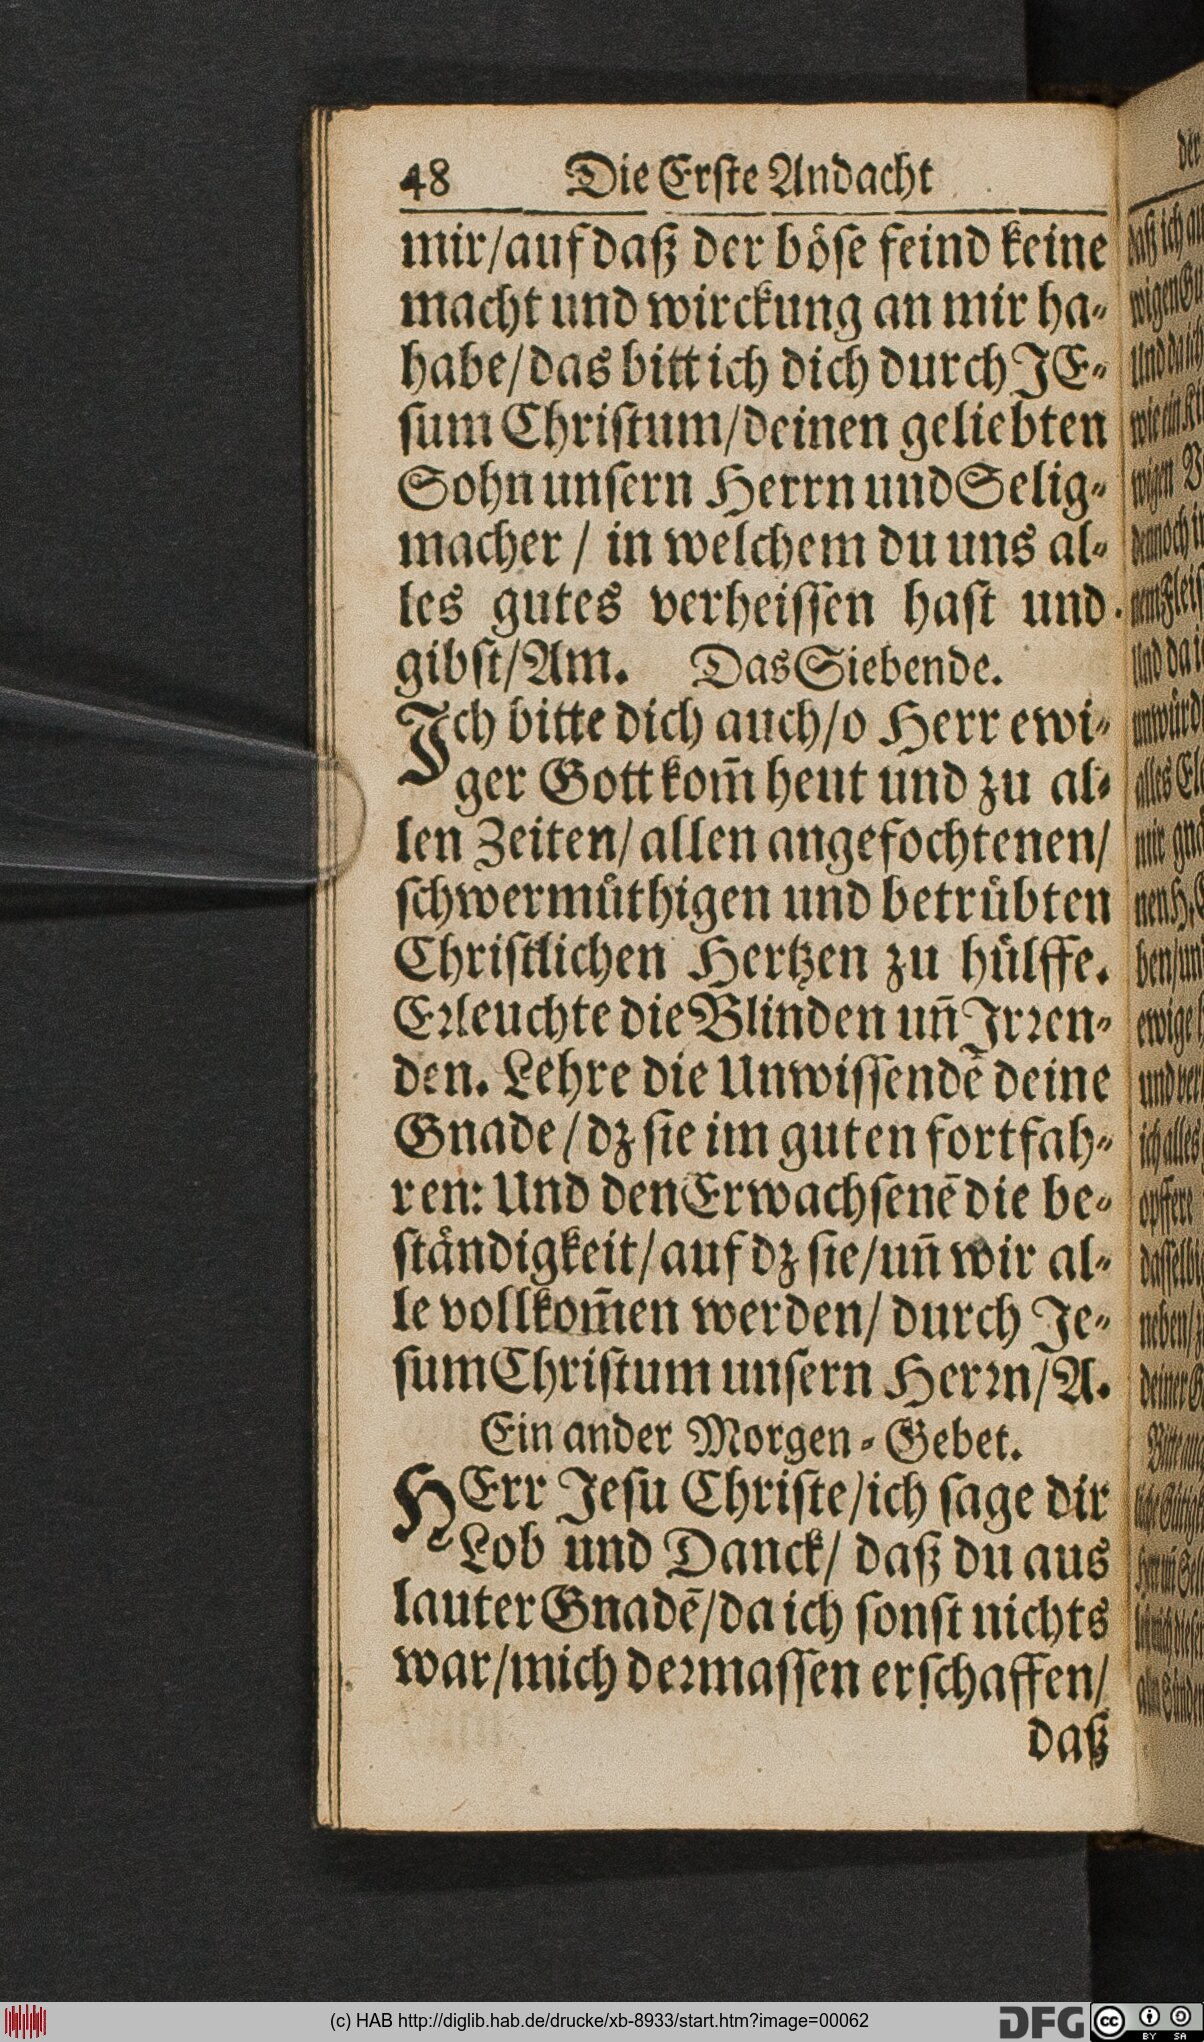 48 Die Erste Andacht
mir/auf daß der böse feind keine
macht und wirckung an mir ha-
habe/das bitt ich dich durch JE-
sum Christum/deinen geliebten
Sohn unsern Herrn und Selig-
macher / in welchem du uns al-
les gutes verheissen hast und
gibst/Am. Das Siebende.
Jch bitte dich auch/o Herr ewi-
ger Gott kom̃ heut und zu al-
len Zeiten/allen angefochtenen/
schwermuͤthigen und betruͤbten
Christlichen Hertzen zu huͤlffe.
Erleuchte die Blinden uñ Jrren-
den. Lehre die Unwissendẽ deine
Gnade/dz sie im guten fortfah-
ren: Und den Erwachsenẽ die be-
staͤndigkeit/auf dz sie/uñ wir al-
le vollkom̃en werden/durch Je-
sum Christum unsern Herrn/A.
Ein ander Morgen-Gebet.
HErr Jesu Christe/ich sage dir
Lob und Danck/ daß du aus
lauter Gnadẽ/da ich sonst nichts
war/mich dermassen erschaffen/
daß
(c) HAB http://diglib.hab.de/drucke/xb-8933/start.htm?image=00062
DFG
cc BY SA